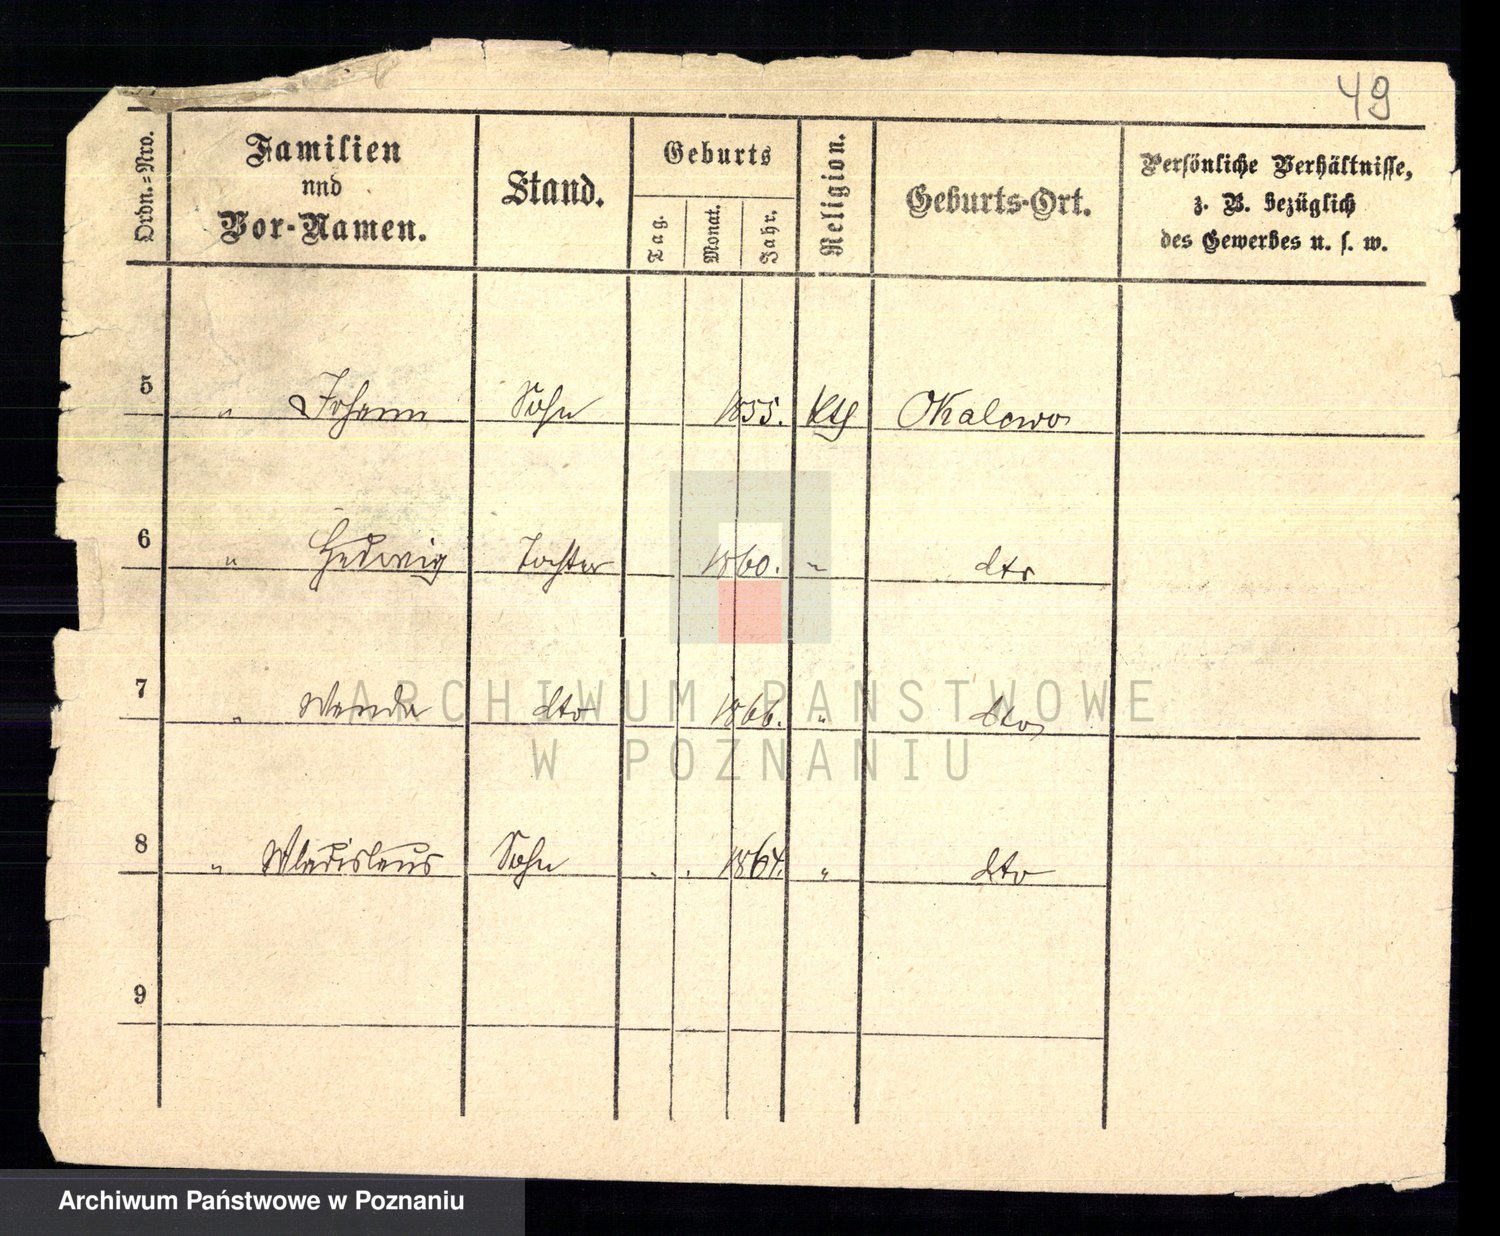 49
Ordn.=Nro.
Familien
nnd
Vor-Namen.
Stand.
Geburts
Tag.
Monat.
Jahr.
Religion.
Geburts-Ort.
Persönliche Verhältnisse,
z. B. bezüglich
des Gewerbes u. s. w.
5 " Johann Sohn 1855. kth Okalewo
6 " Hedwig Tochter 1860. " dto
7 " Wanda dto 1866. " dto
8 " Wladislaus Sohn " " 1864. " dto
9
ARCHIWUM PAŃSTWOWE
W POZNANIU
Archiwum Państwowe w Poznaniu